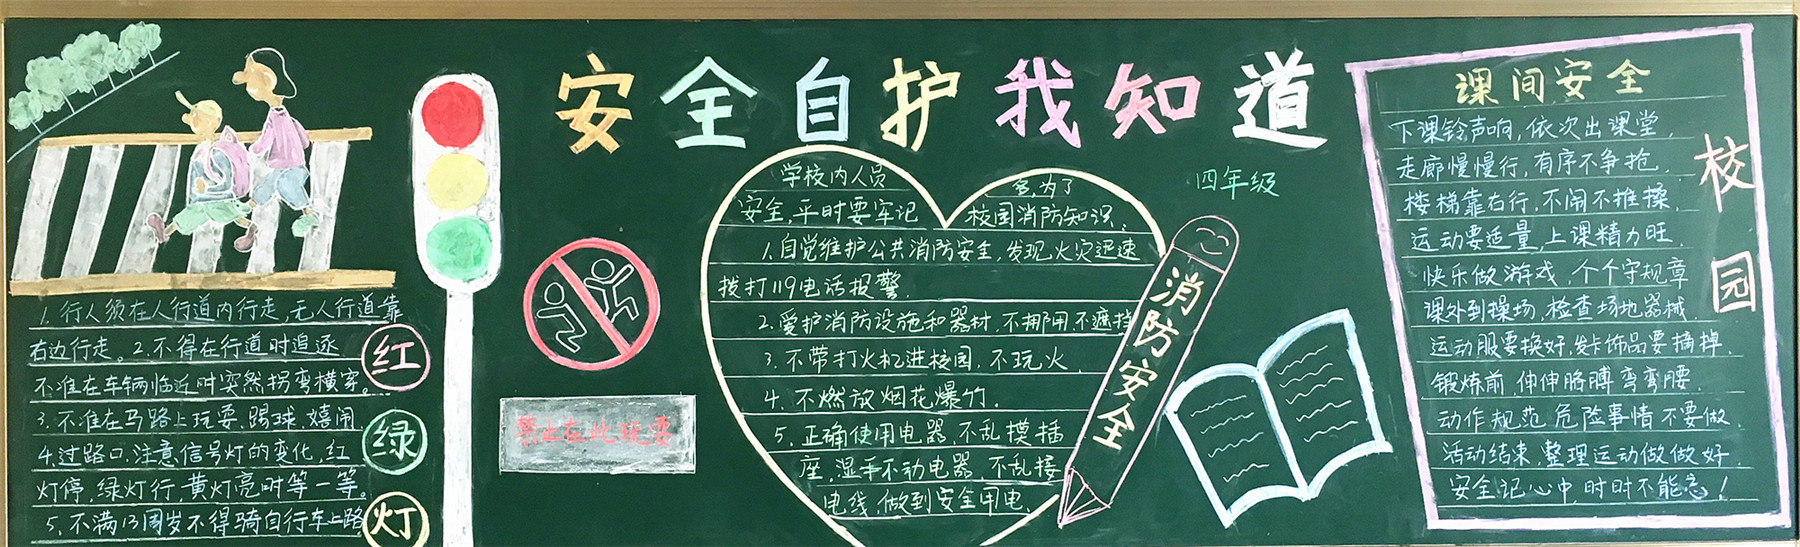 安全自护我知道
四年级
1. 行人须在人行道内行走,无人行道靠
右边行走。2. 不得在行道时追逐
不准在车辆临近时突然拐弯横穿。
3. 不准在马路上玩耍、踢球、嬉闹
4. 过路口,注意信号灯的变化,红
灯停,绿灯行,黄灯亮时等一等。
5. 不满13周岁不得骑自行车上路
红
绿
灯
禁止在此玩耍
学校内人员
多,为了
安全,平时要牢记
校园消防知识、
1. 自觉维护公共消防安全,发现火灾迅速
拨打119电话报警.
2. 爱护消防设施和器材,不挪用,不遮挡
3. 不带打火机进校园,不玩火.
4. 不燃放烟花爆竹.
5. 正确使用电器,不乱摸插
座,湿手不动电器,不乱接
电线,做到安全用电.
消防安全
课间安全
下课铃声响,依次出课堂,
走廊慢慢行,有序不争抢.
楼梯靠右行,不闹不推搡,
运动要适量,上课精力旺.
快乐做游戏,个个守规章
课外到操场,检查场地器械.
运动服要换好,发卡饰品要摘掉.
锻炼前,伸伸胳膊弯弯腰.
动作规范,危险事情不要做.
活动结束,整理运动做做好.
安全记心中,时时不能忘!
校园